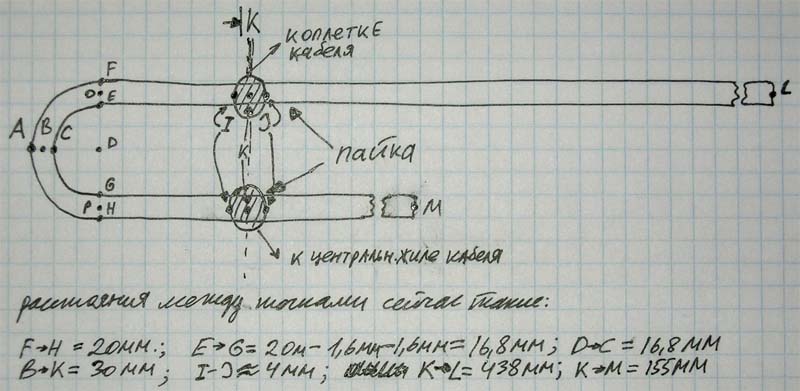 K
К ОПЛЕТКЕ
КАБЕЛЯ
F
O
E
L
A
B
C
I
J
D
K
ПАЙКА
G
P
H
M
К ЦЕНТРАЛЬН. ЖИЛЕ КАБЕЛЯ
расстояния между точками сейчас такие:
F→H = 20мм.; E→G = 20м - 1,6мм - 1,6мм = 16,8мм; D→C = 16,8мм
B→K = 30мм; I-J ≈ 4мм; K→L = 438мм; K→M = 155мм